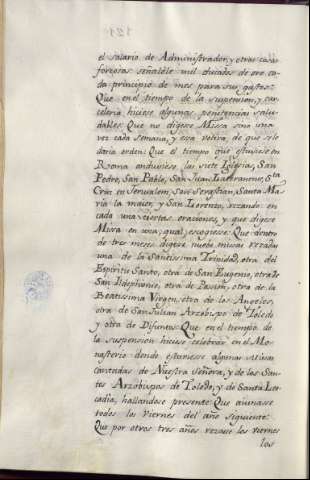 el salario de Administrador, y otras cosas
forzosas señalóle mil ducados de oro ca-
da principio de mes para sus gastos:
Que en el tiempo de la suspension, y car-
celeria hiciese algunas penitencias salu-
dables: Que no digese Missa sino una
vez cada semana, y esta retira de que se le
daria orden: Que el tiempo que estuviese en
Roma anduviese las siete Iglesias, San
Pedro, San Pablo, San Juan Lateranense, Sta
Cruz en Jerusalem, San Sevastian, Santa Ma-
ria la maior, y San Lorenzo, rezando en
cada una ciertas oraciones, y que digese
Missa en una, qual escogiese: Que dentro
de tres meses digese nueve missas rezadas
una de la Santissima Trinidad, otra del
Espiritu Santo, otra de San Eugenio, otra de
San Ildephonso, otra de Passion, otra de la
Beatissima Virgen, otra de los Angeles,
otra de San Julian Arzobispo de Toledo
y otra de Difuntos: Que en el tiempo de
la suspension hiciese celebrar en el Mo-
nasterio donde estuviesse algunas Missas
cantadas de Nuestra Señora, y de los San-
tos Arzobispos de Toledo, y de Santa Leo-
cadia, hallandose presente: Que aiunasse
todos los Viernes del año siguiente:
Que por otros tres años rezase los viernes
los